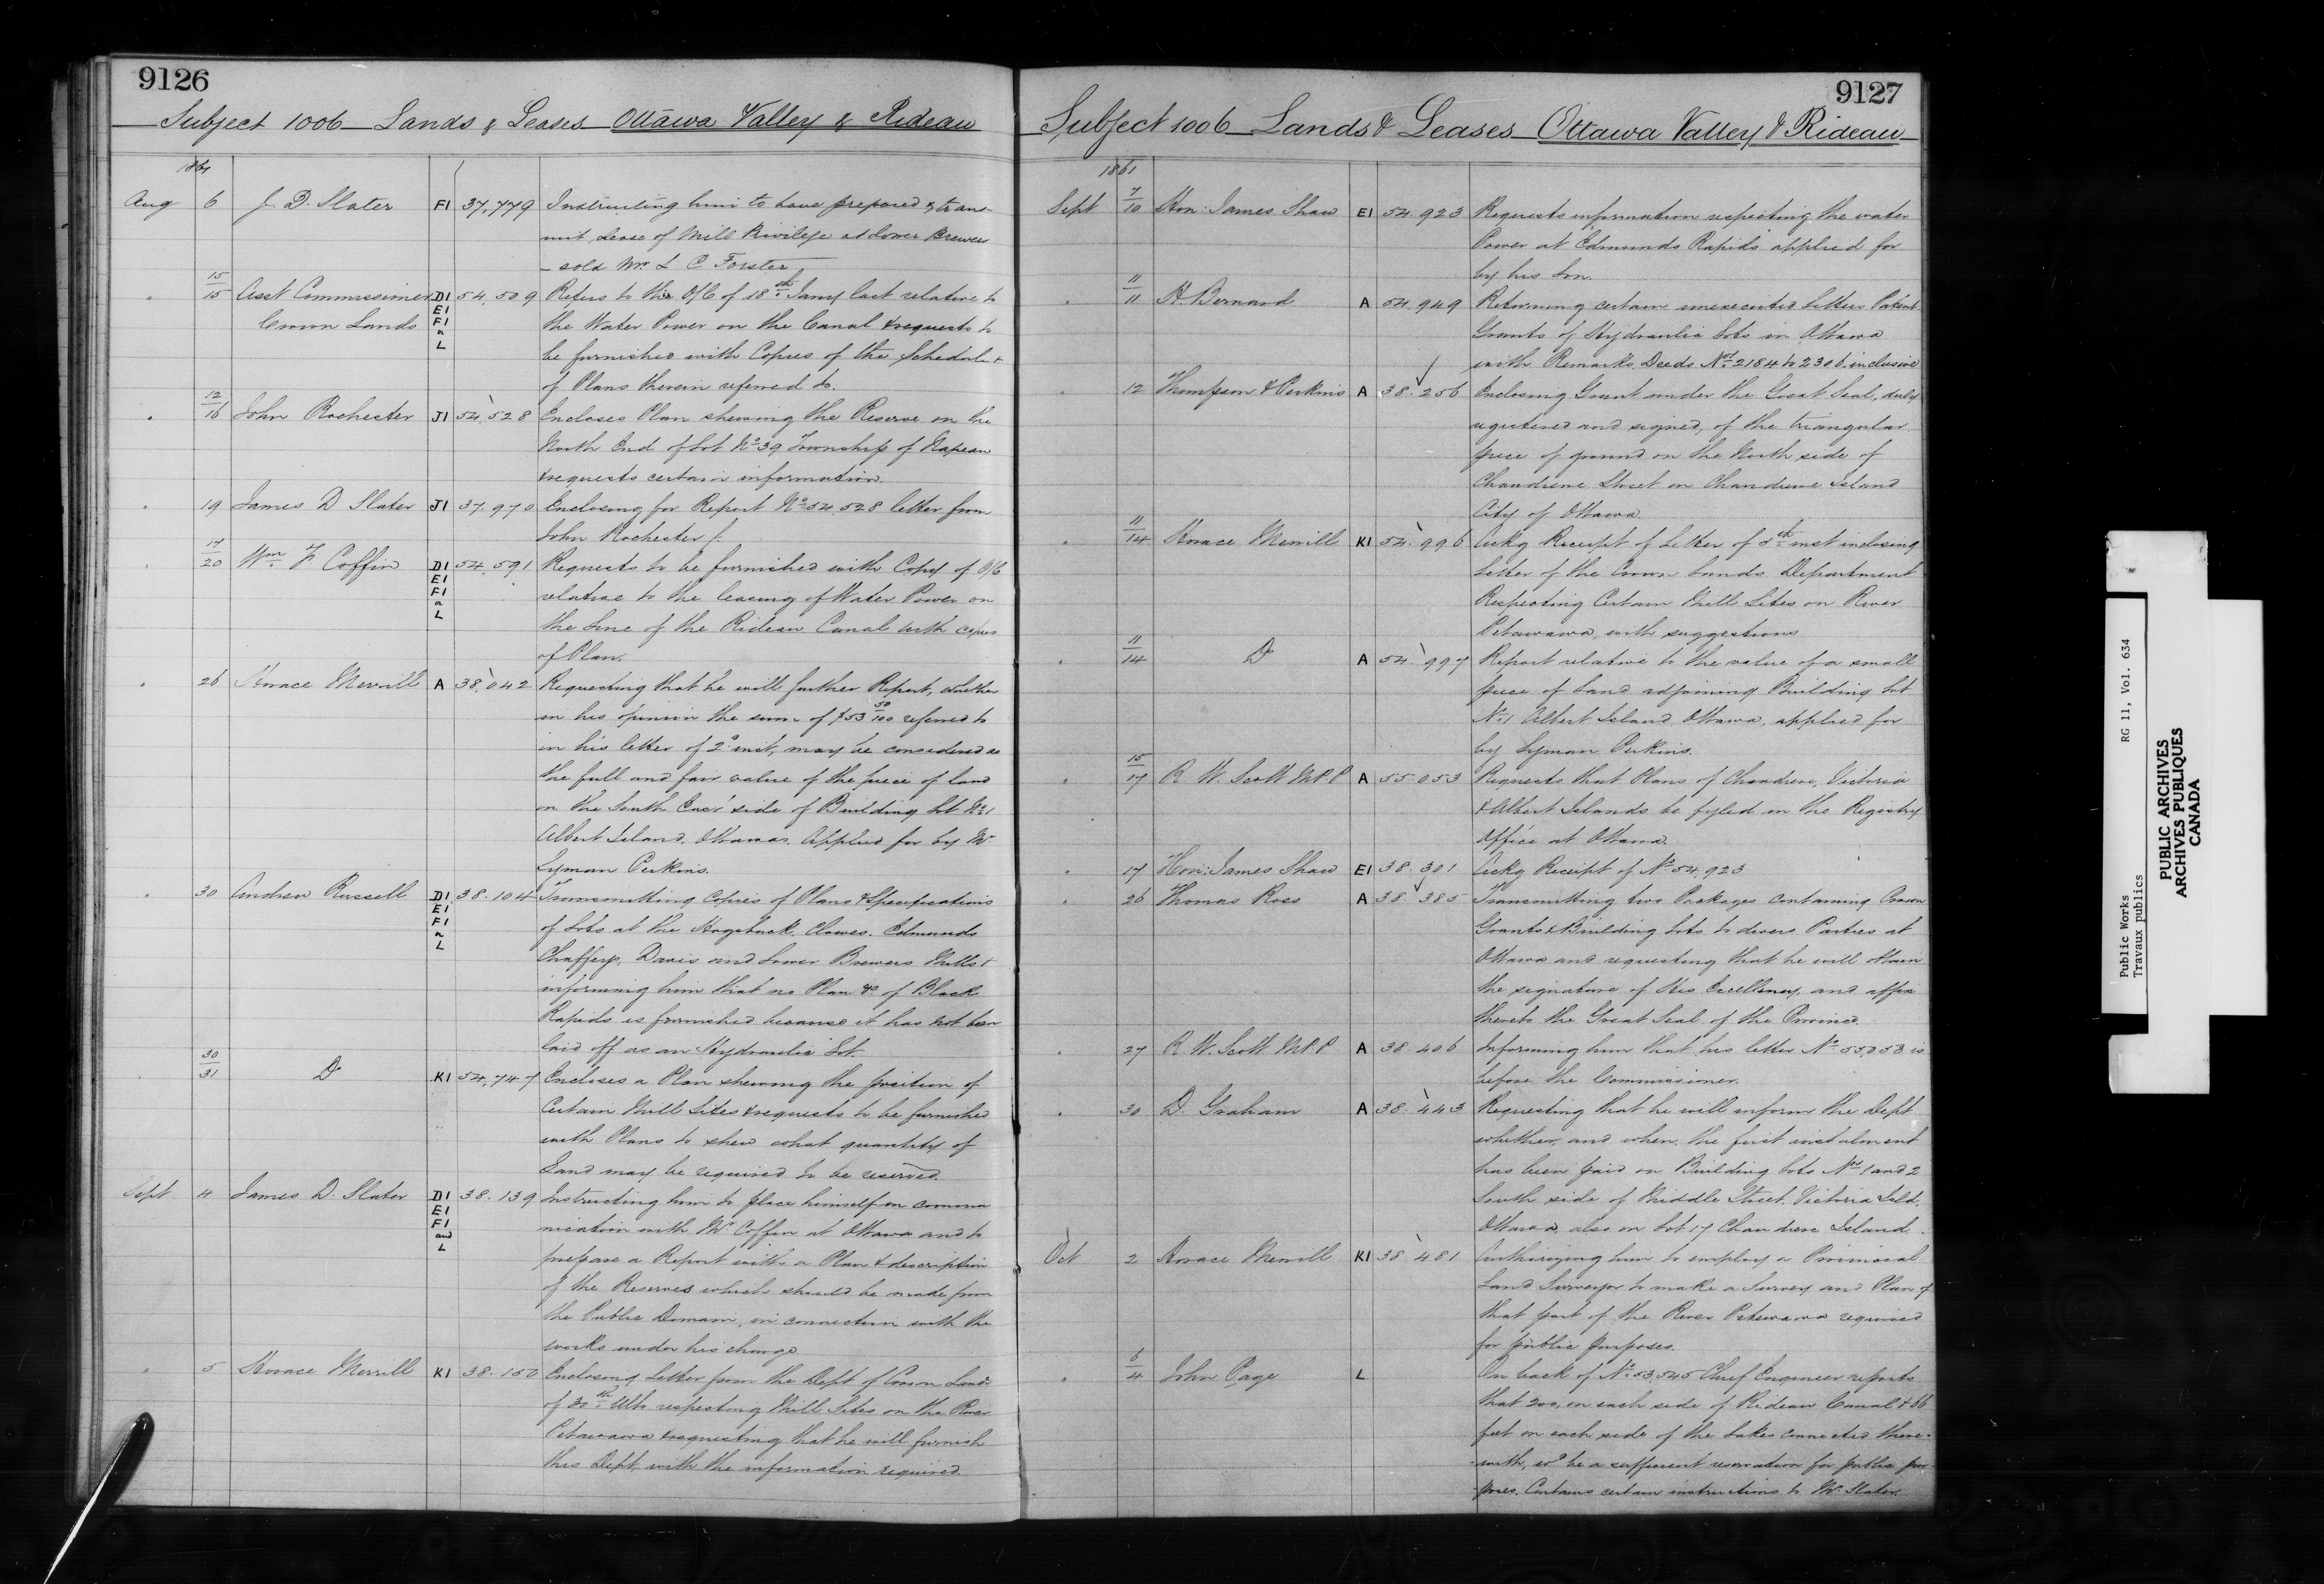 9126
Subject 1006 Lands & Leases Ottawa Valley & Rideau
1861
Aug 6 J. D. Slater F1 37,779 Instructing him to have prepared & trans-
mit Lease of Mill Privilege at Lower Brewers
sold Mr. L C Forster
15/15 Asst Commissioner D1 54,509 Refers to the O/C of 18th Jany last relative to
Crown Lands E1 F1 & L the Water Power on the Canal & requests to
be furnished with Copies of the Schedule &
of Plans therein referred to.
12/16 John Rochester J1 54,528 Encloses Plan shewing the Reserve on the
North End of Lot No 39 Township of Napean
& requests certain information.
19 James D Slater J1 37,970 Enclosing for Report No 54,528 letter from
John Rochester J.
17/20 Wm F Coffin D1 54,591 Requests to be furnished with Copy of O/C
E1 F1 & L relative to the leasing of Water Power on
the Line of the Rideau Canal with copies
of Plan.
26 Horace Merrill A 38,042 Requesting that he will further Report, whether
in his opinion the sum of $53 50/100 referred to
in his letter of 2d inst, may be considered as
the full and fair value of the piece of land
on the South East side of Building Lot No 1
Albert Island, Ottawa. Applied for by Mr
Lyman Perkins.
30 Andrew Russell D1 38.104 Transmitting Copies of Plans & Specifications
E1 F1 & L of Lots at the Hogsback, Clowes, Edmunds
Chaffeys, Davis and Lower Brewers Mills &
informing him that no Plan &c of Black
Rapids is furnished because it has not been
laid off as an Hydraulic Lot.
30/31 Do K1 54,747 Encloses a Plan shewing the position of
Certain Mill Sites & requests to be furnished
with Plans to shew what quantity of
Land may be required to be reserved.
Sept 4 James D. Slater D1 38.139 Instructing him to place himself in commu
E1 F1 and L nication with Mr Coffin at Ottawa and to
prepare a Report with a Plan & description
of the Reserves which should be made from
the Public Domain, in connection with the
works under his charge
5 Horace Merrill K1 38.150 Enclosing Letter from the Dept of Crown Lands
of 30th Ulto respecting Mill Sites on the River
Petawawa & requesting that he will furnish
this Dept. with the information required.
9127
Subject 1006 Lands & Leases Ottawa Valley & Rideau
1861
Sept 7/10 Hon: James Shaw E1 54.923 Requests information respecting the water
Power at Edmunds Rapids applied for
by his Son.
11/11 H. Bernard A 54.949 Returning certain unexecuted Letters Patent
Grants of Hydraulic Lots in Ottawa
with Remarks. Deeds Nos 2184 to 2306 inclusive
12 Thompson & Perkins A 38.256 Enclosing Grant under the Great Seal, duly
registered and signed, of the triangular
piece of ground on the North side of
Chaudiere Street on Chaudiere Island
City of Ottawa.
11/14 Horace Merrill K1 54.996 Ackg Receipt of Letter of 5th inst inclosing
Letter of the Crown Lands Department
Respecting Certain Mill Sites on River
Petawawa, with suggestions
11/14 Do A 54.997 Report relative to the value of a small
piece of Land adjoining Building Lot
No 1 Albert Island Ottawa, applied for
by Lyman Perkins.
15/17 R. W. Scott M.P.P A 55.053 Requests that Plans of Chaudiere, Victoria
& Albert Islands be fyled in the Registry
Office at Ottawa.
17 Hon: James Shaw E1 38.301 Ackg Receipt of No 54.923
26 Thomas Ross A 38.385 Transmitting two Packages containing Crown
Grants & Building Lots to divers Parties at
Ottawa and requesting that he will obtain
the signature of His Excellency, and affix
thereto the Great Seal of the Province.
27 R. W. Scott M.P.P A 38.406 Informing him that his letter No 55053 is
before the Commissioner.
30 D. Graham A 38.443 Requesting that he will inform the Dept
whether, and when, the first instalment
has been paid on Building Lots Nos 1 and 2
South side of Middle Street, Victoria Isld,
Ottawa, also on Lot 17 Chaudiere Island.
Oct 2 Horace Merrill K1 38.481 Authorizing him to employ a Provincial
Land Surveyor to make a Survey and Plan of
that part of the River Petewawa required
for public purposes.
6/4 John Page L On back of No 53,545 Chief Engineer reports
that 200, on each side of Rideau Canal & 66
feet on each side of the Lakes connected there-
-with, wd be a sufficient reservation for public pur-
-poses. Contains certain instructions to Mr Slater.
Public Works RG 11, Vol. 634
Travaux publics
PUBLIC ARCHIVES
ARCHIVES PUBLIQUES
CANADA